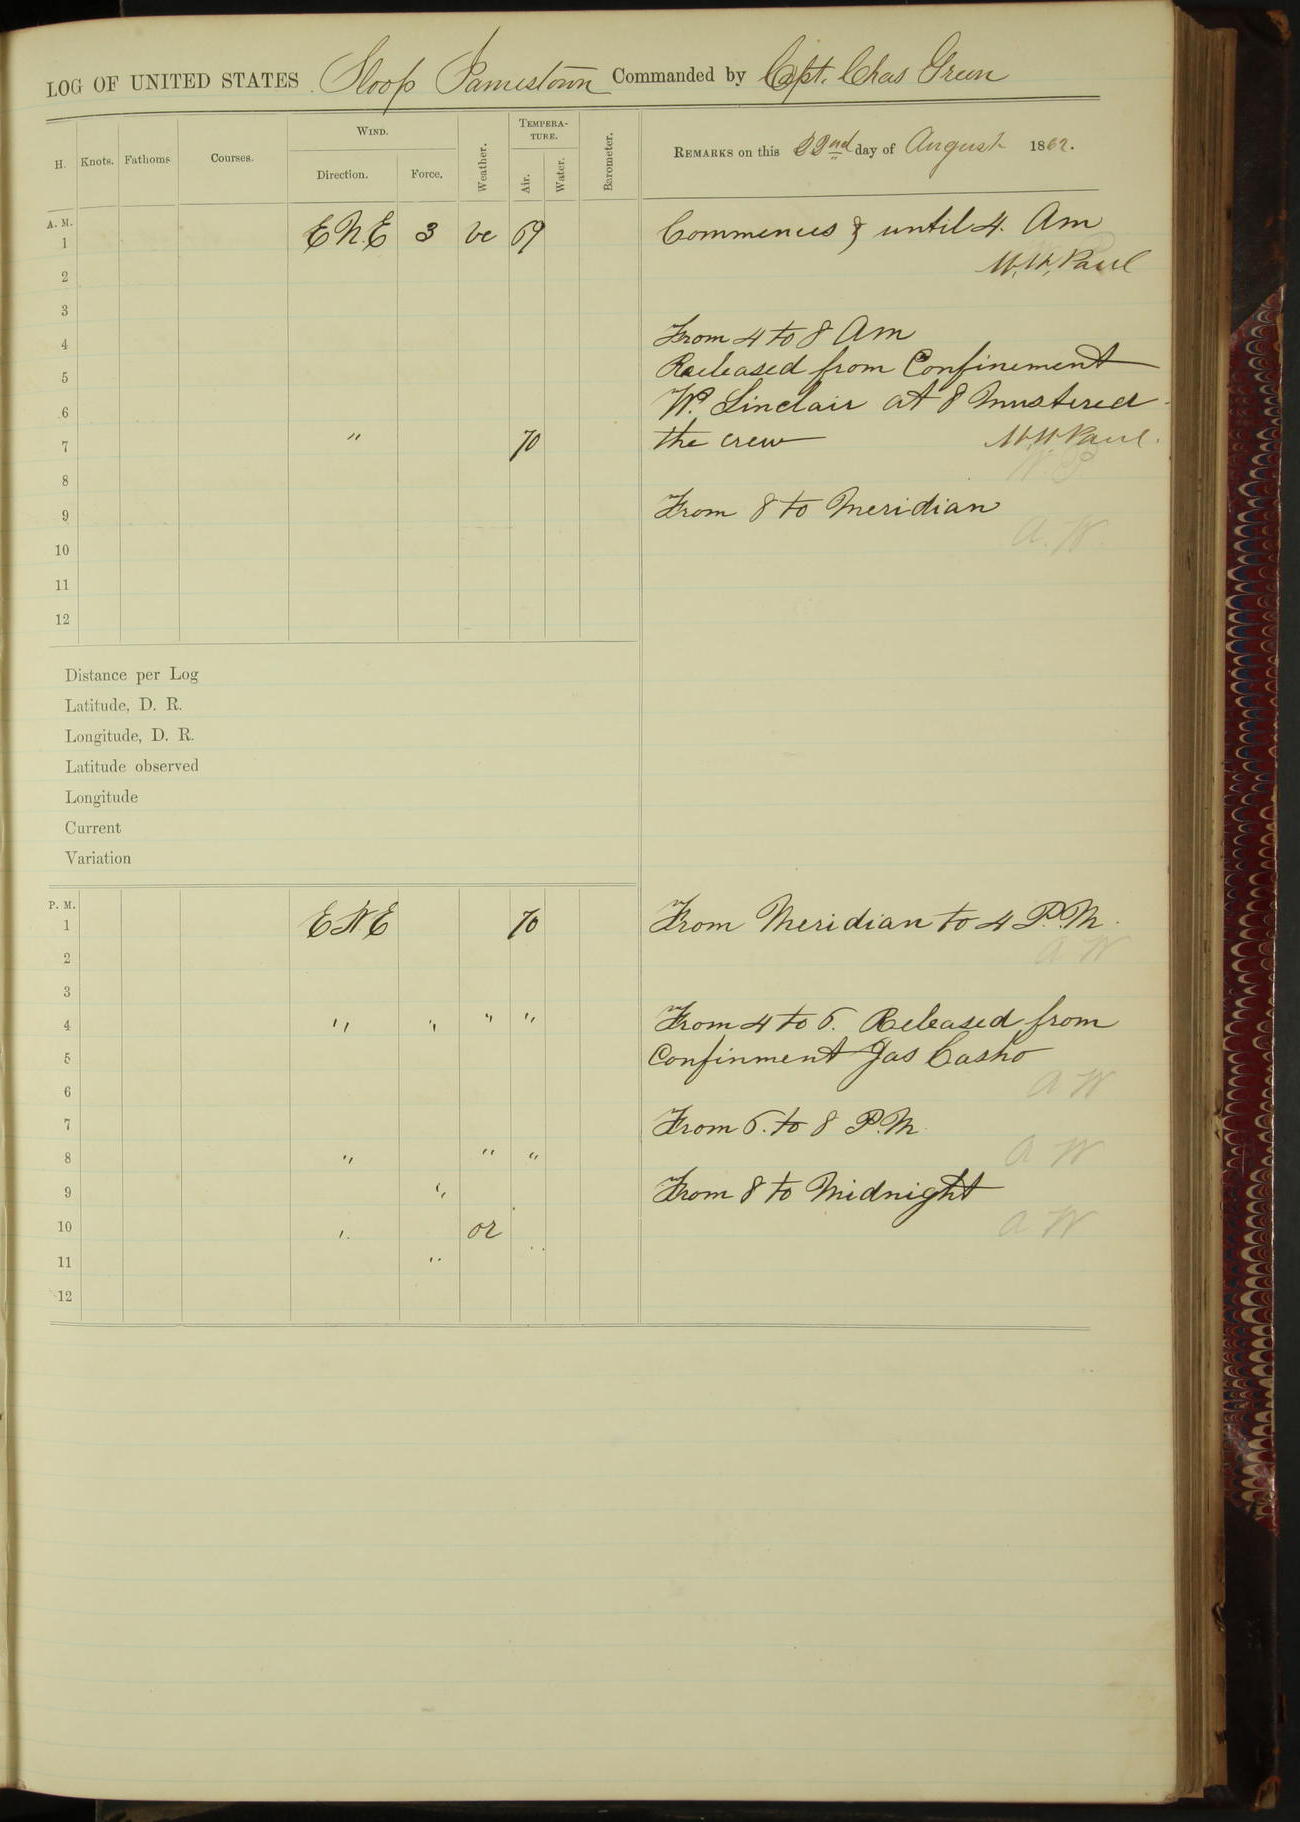 LOG OF UNITED STATES Sloop Jamestown Commanded by Capt. Chas Green
H. Knots. Fathoms Courses. WIND. Direction. Force. Weather. TEMPERATURE. Air. Water. Barometer. REMARKS on this 22nd day of August 1862.
A. M.
1 ENE 3 bc 69 Commences & until 4. Am
2 W.W. Paul
3
From 4 to 8 Am
4
Released from Confinement
5
6 Wm. Sinclair at 8 mustered
7 " 70 the crew W.W. Paul.
W. P.
8
9 From 8 to Meridian
A. W.
10
11
12
Distance per Log
Latitude, D. R.
Longitude, D. R.
Latitude observed
Longitude
Current
Variation
P. M.
1 ENE 70 From Meridian to 4 P.M.
2 A W
3
4 " " " " From 4 to 6. Released from
5 Confinment Jas Casho
6 A W
7 From 6. to 8 P.M.
8 " " " A W
9 " From 8 to Midnight
10 " or A W
11 "
12